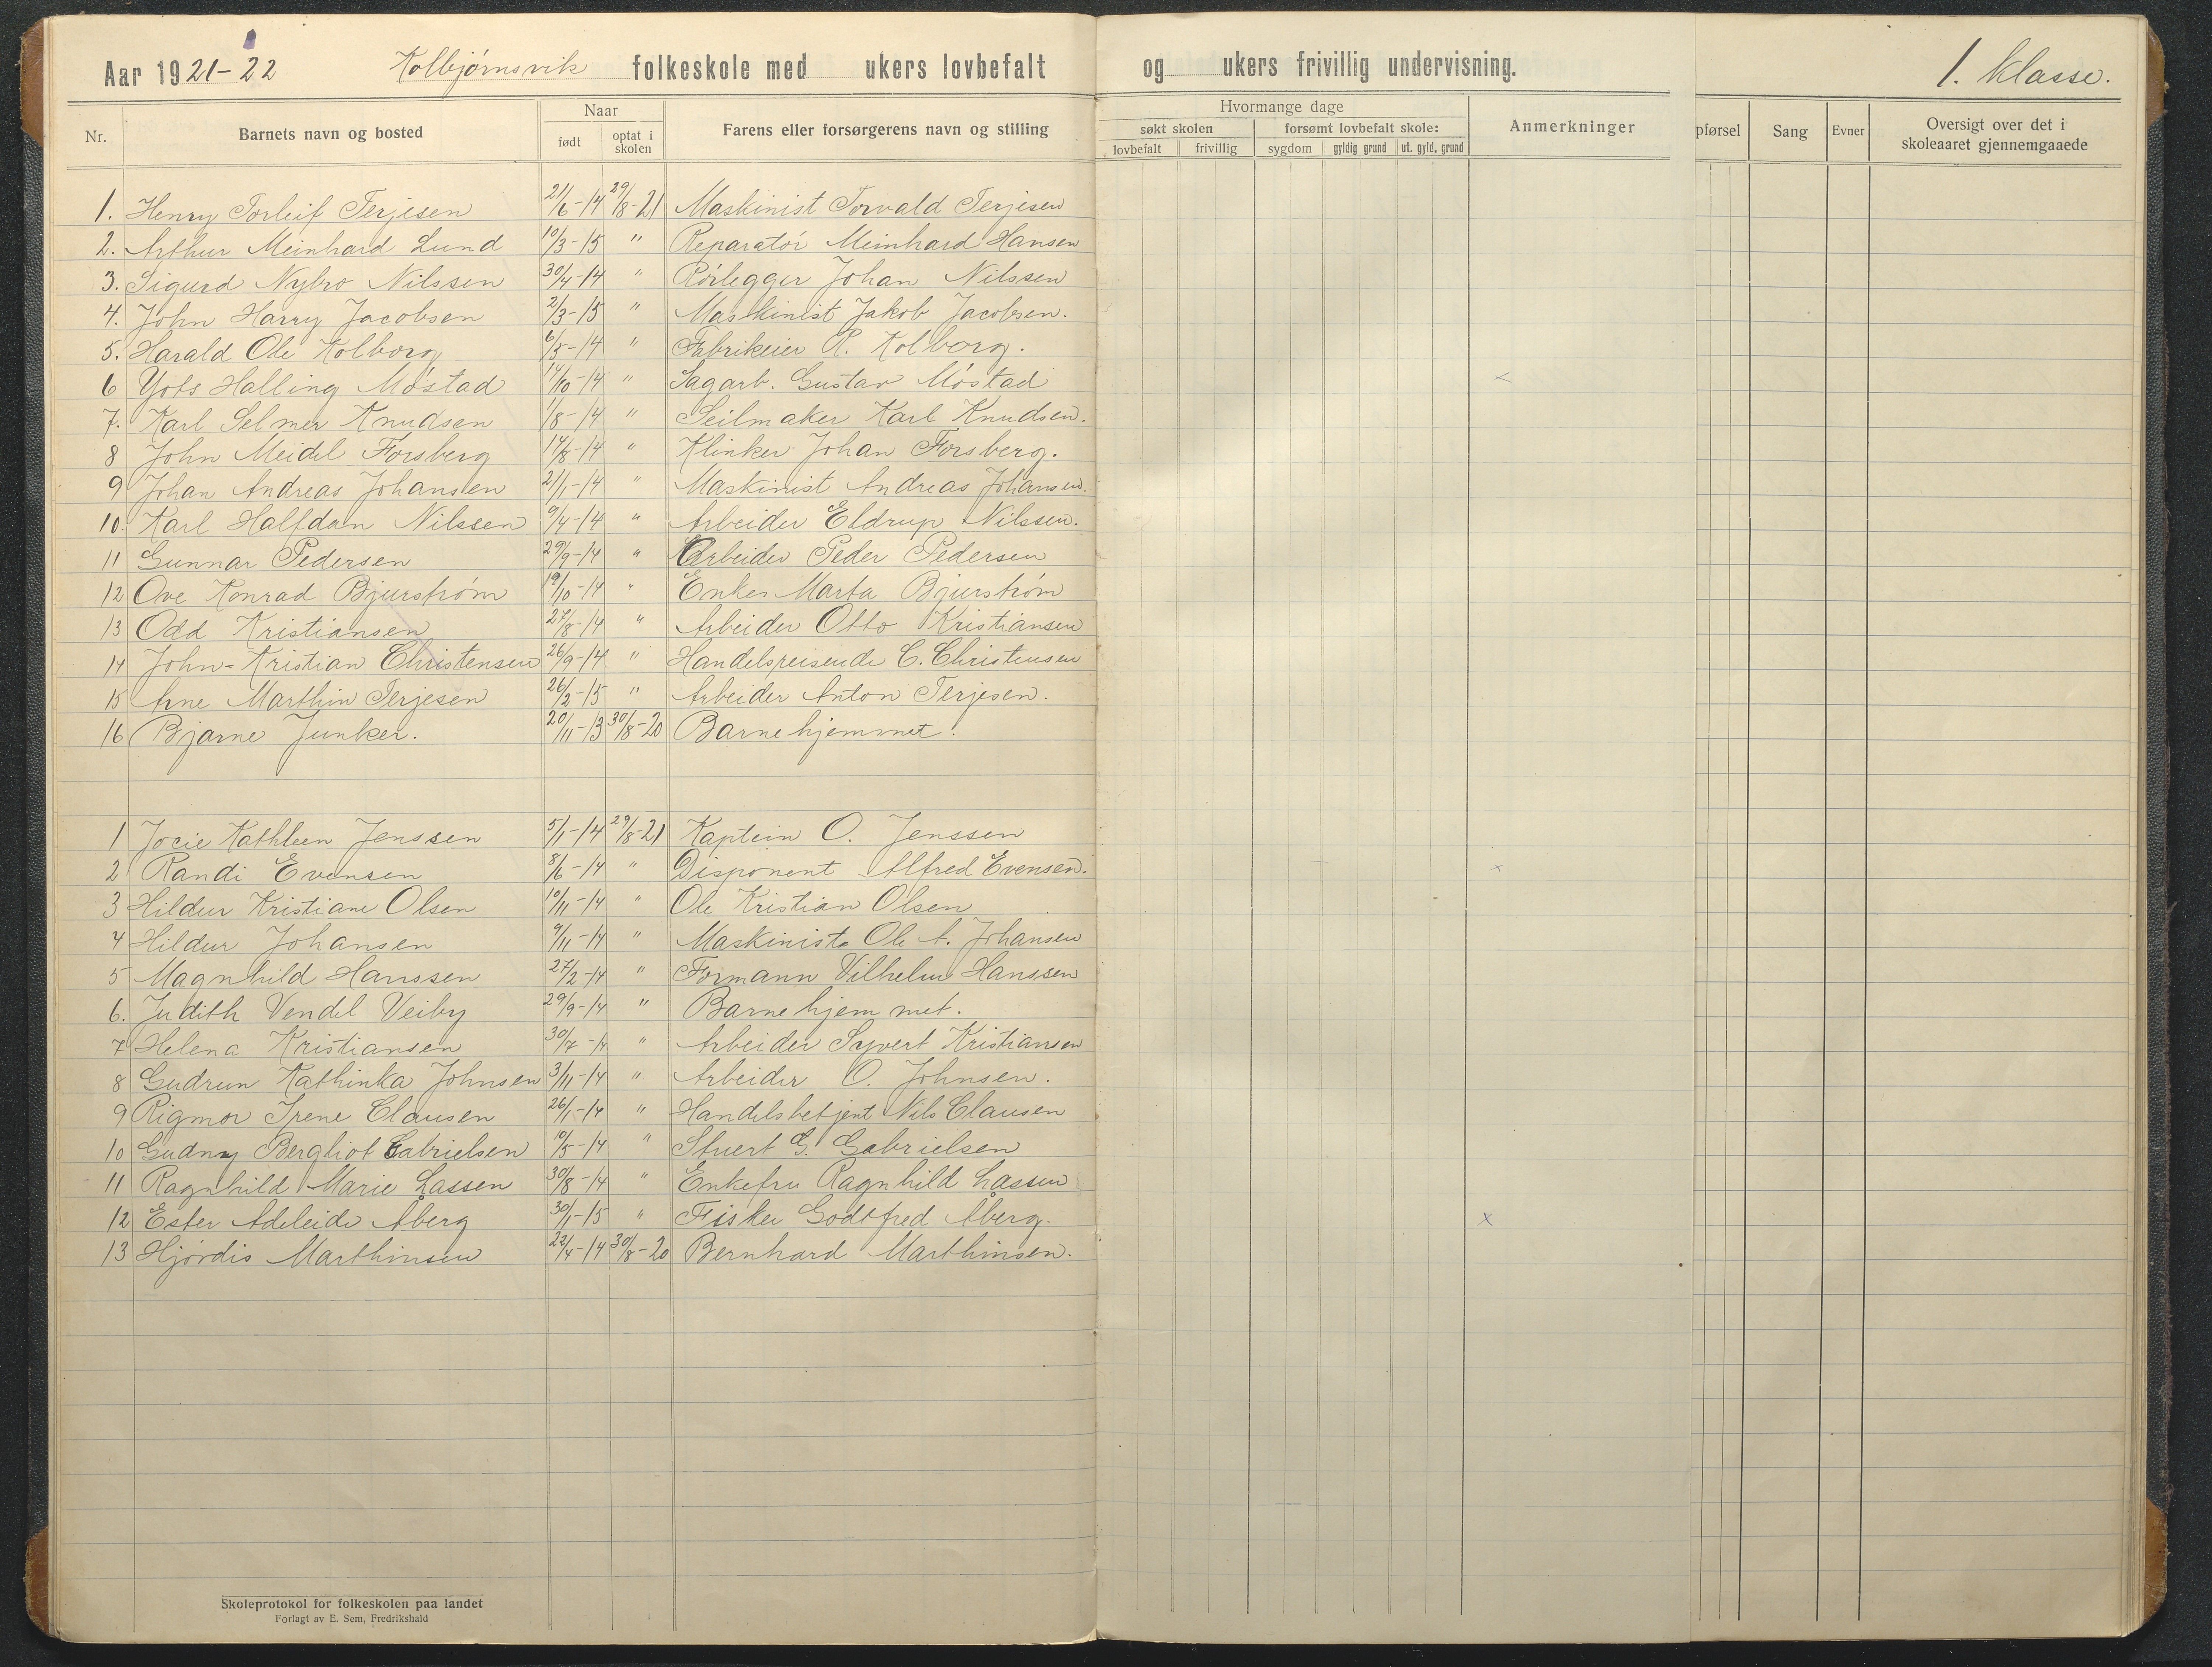 Aar 1921-22 Kolbjørnsvik folkeskole med ukers lovbefalt og ukers frivillig undervisning. 1. klasse.
Nr. Barnets navn og bosted Naar født optat i skolen Farens eller forsørgerens navn og stilling Hvormange dage søkt skolen lovbefalt frivillig forsømt lovbefalt skole: sygdom gyldig grund ut. gyld. grund Anmerkninger pførsel Sang Evner Oversigt over det i skoleaaret gjennemgaaede
1. Henry Torleif Terjesen 21/6-14 29/8-21 Maskinist Torvald Terjesen
2. Arthur Meinhard Lund 10/3-15 " Reparatør Meinhard Hansen
3. Sigurd Nybro Nilssen 30/4-14 " Rørlegger Johan Nilssen
4. John Harry Jacobsen 2/3-15 " Maskinist Jakob Jacobsen.
5. Harald Ole Kolborg 6/5-14 " Fabrikeier R. Kolborg.
6 Halling Møstad /10-14 " Sagarb. Gustav Møstad
7. Karl Selmer Knudsen 1/8-14 " Seilmaker Karl Knudsen.
8 John Meidel Forsberg 14/8-14 " Klinker Johan Forsberg.
9 Johan Andreas Johansen 21/1-14 " Maskinist Andreas Johansen.
10. Karl Halfdan Nilssen 9/4-14 " Arbeider Eldrup Nilssen.
11 Gunnar Pedersen 29/9-14 " Arbeider Peder Pedersen
12 Ove Konrad Bjurstrøm 19/10-14 " Enke Marta Bjurstrøm
13 Odd Kristiansen 27/8-14 " Arbeider Otto Kristiansen
14 John-Kristian Christensen 26/9-14 " Handelsreisende C. Christensen
15 Arne Marthin Terjesen 26/2-15 " Arbeider Anton Terjesen.
16 Bjarne Junker. 20/11-13 30/8-20 Barnehjemmet.
1 Jocie Kathleen Jenssen 5/1-14 29/8-21 Kaptein O. Jenssen
2 Randi Evensen 8/6-14 " Disponent Alfred Evensen. x
3 Hildur Kristiane Olsen 10/11-14 " Ole Kristian Olsen
4 Hildur Johansen 9/11-14 " Maskinist Ole A. Johansen
5 Magnhild Hanssen 27/2-14 " Formann Vilhelm Hanssen
6. Judith Vendel Veiby 29/9-14 " Barnehjemmet.
7 Helena Kristiansen 30/7-14 " Arbeider Syvert Kristiansen
8 Gudrun Kathinka Johnsen 3/11-14 " Arbeider O. Johnsen.
9 Rigmor Irene Clausen 26/1-14 " Handelsbetjent Nils Clausen
10 Gudny Bergliot Gabrielsen 10/5-14 " Stuert G. Gabrielsen
11 Ragnhild Marie Lassen 30/8-14 " Enkefru Ragnhild Lassen
12 Ester Adeleide Åberg 30/1-15 " Fisker Godtfred Åberg. x
13 Hjørdis Marthinsen 22/4-14 30/8-20 Bernhard Marthinsen.
Skoleprotokol for folkeskolen paa landet
Forlagt av E. Sem, Fredrikshald